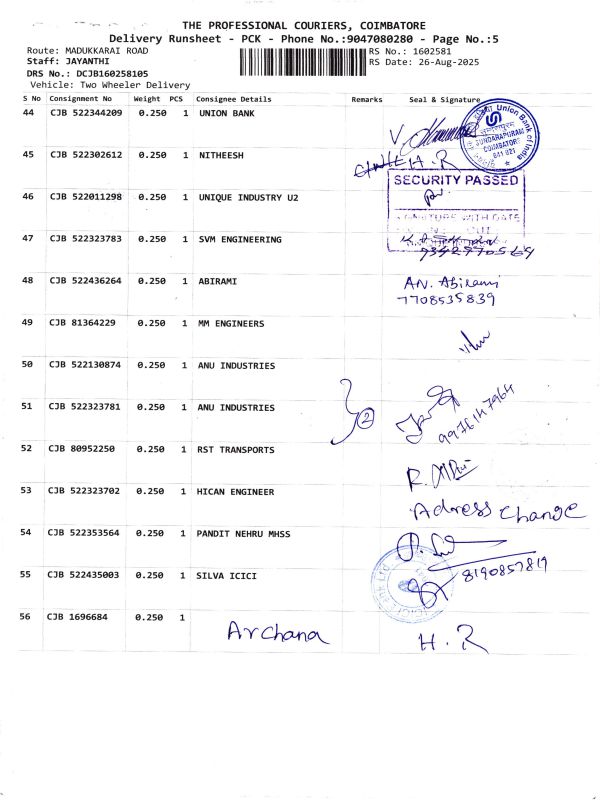 THE PROFESSIONAL COURIERS, COIMBATORE
Delivery Runsheet - PCK - Phone No.:9047080280 - Page No.:5
Route: MADUKKARAI ROAD RS No.: 1602581
Staff: JAYANTHI RS Date: 26-Aug-2025
DRS No.: DCJB160258105
Vehicle: Two Wheeler Delivery
S No Consignment No Weight PCS Consignee Details Remarks Seal & Signature
44 CJB 522344209 0.250 1 UNION BANK
Union Bank of India
SUNDARAPURAM
COIMBATORE
641 021
45 CJB 522302612 0.250 1 NITHEESH H.R
SECURITY PASSED
46 CJB 522011298 0.250 1 UNIQUE INDUSTRY U2
SIGNATURE WITH DATE
OUT
47 CJB 522323783 0.250 1 SVM ENGINEERING
9342770564
48 CJB 522436264 0.250 1 ABIRAMI AN. Abirami
7708535839
49 CJB 81364229 0.250 1 MM ENGINEERS
50 CJB 522130874 0.250 1 ANU INDUSTRIES
51 CJB 522323781 0.250 1 ANU INDUSTRIES 2 9976147964
52 CJB 80952250 0.250 1 RST TRANSPORTS
53 CJB 522323702 0.250 1 HICAN ENGINEER Adress change
54 CJB 522353564 0.250 1 PANDIT NEHRU MHSS
55 CJB 522435003 0.250 1 SILVA ICICI 8190857819
56 CJB 1696684 0.250 1 Archana H.R